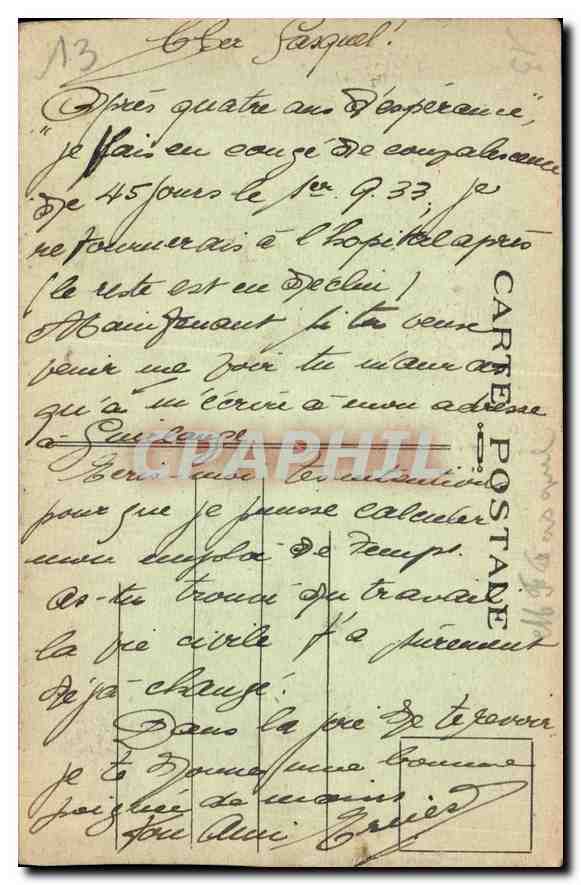 13
Cher Gasquel!
Après quatre ans "d'espérance",
je fais en congé de convalescence
de 45 jours le 1er. 9.33, je
retournerais à l'hopital après
(le reste est en déclin)
Maintenant si tu veux
venir me voir tu m'auras
qu'à m'écrire à mon adresse
à
Ecris moi tes intentions
pour que je puisse calculer
mon emploi de temps.
as-tu trouvé du travail
la vie civile t'a surement
déjà changé!
Dans la joie de te revoir
je te donne une bonne
poignée de mains
Ton Ami
CARTE POSTALE
CPAPHIL